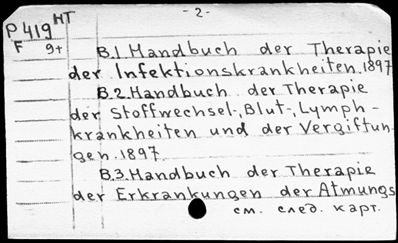 - 2 -
P 419 HT
F 9+
B.1. Handbuch der Therapie
der Infektionskrankheiten. 1897
B.2. Handbuch der Therapie
der Stoffwechsel-, Blut-, Lymph-
krankheiten und der Vergiftun-
gen. 1897
B.3. Handbuch der Therapie
der Erkrankungen der Atmungs
см. след. карт.